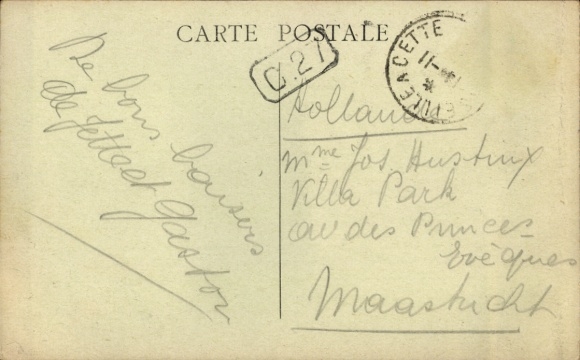 CARTE POSTALE
C.27
A CETTE
11-
De bons baisers
de Jet et Gaston
Hollande
Mme Jos. Hustinx
Villa Park
av des Princes
Evêques
Maastricht